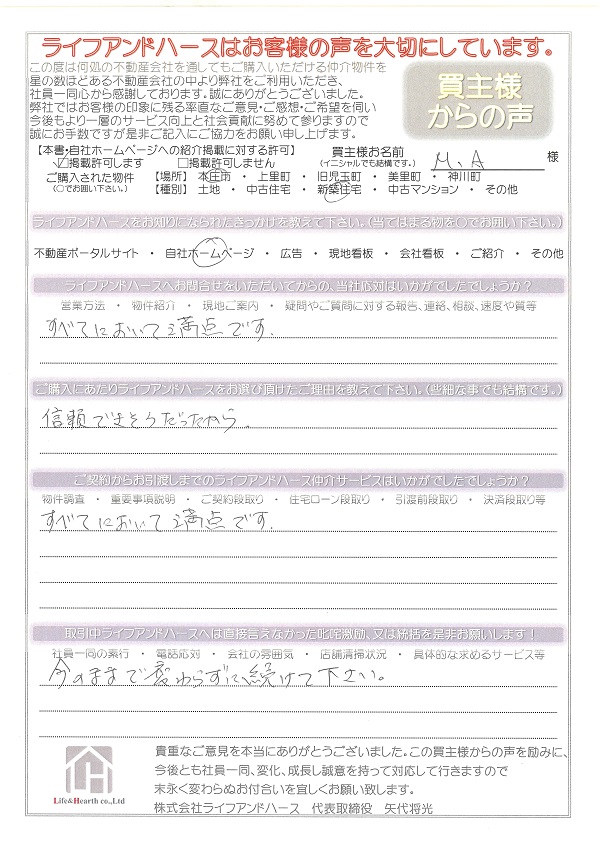 ライフアンドハースはお客様の声を大切にしています。
この度は何処の不動産会社を通してもご購入いただける仲介物件を
星の数ほどある不動産会社の中より弊社をご利用いただき、
社員一同心から感謝しております。誠にありがとうございました。
弊社ではお客様の印象に残る率直なご意見・ご感想・ご希望を伺い
今後もより一層のサービス向上と社会貢献に努めて参りますので
誠にお手数ですが是非ご記入にご協力をお願い申し上げます。
買主様
からの声
【本書・自社ホームページへの紹介掲載に対する許可】
☑掲載許可します □掲載許可しません
買主様お名前
(イニシャルでも結構です。)
M.A 様
ご購入された物件
(○でお囲い下さい。)
【場所】 本庄市 ・ 上里町 ・ 旧児玉町 ・ 美里町 ・ 神川町
【種別】 土地 ・ 中古住宅 ・ 新築住宅 ・ 中古マンション ・ その他
ライフアンドハースをお知りになられたきっかけを教えて下さい。(当てはまる物を○でお囲い下さい。)
不動産ポータルサイト ・ 自社ホームページ ・ 広告 ・ 現地看板 ・ 会社看板 ・ ご紹介 ・ その他
ライフアンドハースへお問合せをいただいてからの、当社応対はいかがでしたでしょうか?
営業方法 ・ 物件紹介 ・ 現地ご案内 ・ 疑問やご質問に対する報告、連絡、相談、速度や質等
すべてにおいて満点です.
ご購入にあたりライフアンドハースをお選び頂けたご理由を教えて下さい。(些細な事でも結構です。)
信頼できそうだったから.
ご契約からお引渡しまでのライフアンドハース仲介サービスはいかがでしたでしょうか?
物件調査 ・ 重要事項説明 ・ ご契約段取り ・ 住宅ローン段取り ・ 引渡前段取り ・ 決済段取り等
すべてにおいて満点です.
取引中ライフアンドハースへは直接言えなかった叱咤激励、又は統括を是非お願いします!
社員一同の素行 ・ 電話応対 ・ 会社の雰囲気 ・ 店舗清掃状況 ・ 具体的な求めるサービス等
今のままで変わらずに続けて下さい。
貴重なご意見を本当にありがとうございました。この買主様からの声を励みに、
今後とも社員一同、変化、成長し誠意を持って対応して行きますので
末永く変わらぬお付合いを宜しくお願い致します。
株式会社ライフアンドハース 代表取締役 矢代将光
LH
Life&Hearth co.,Ltd